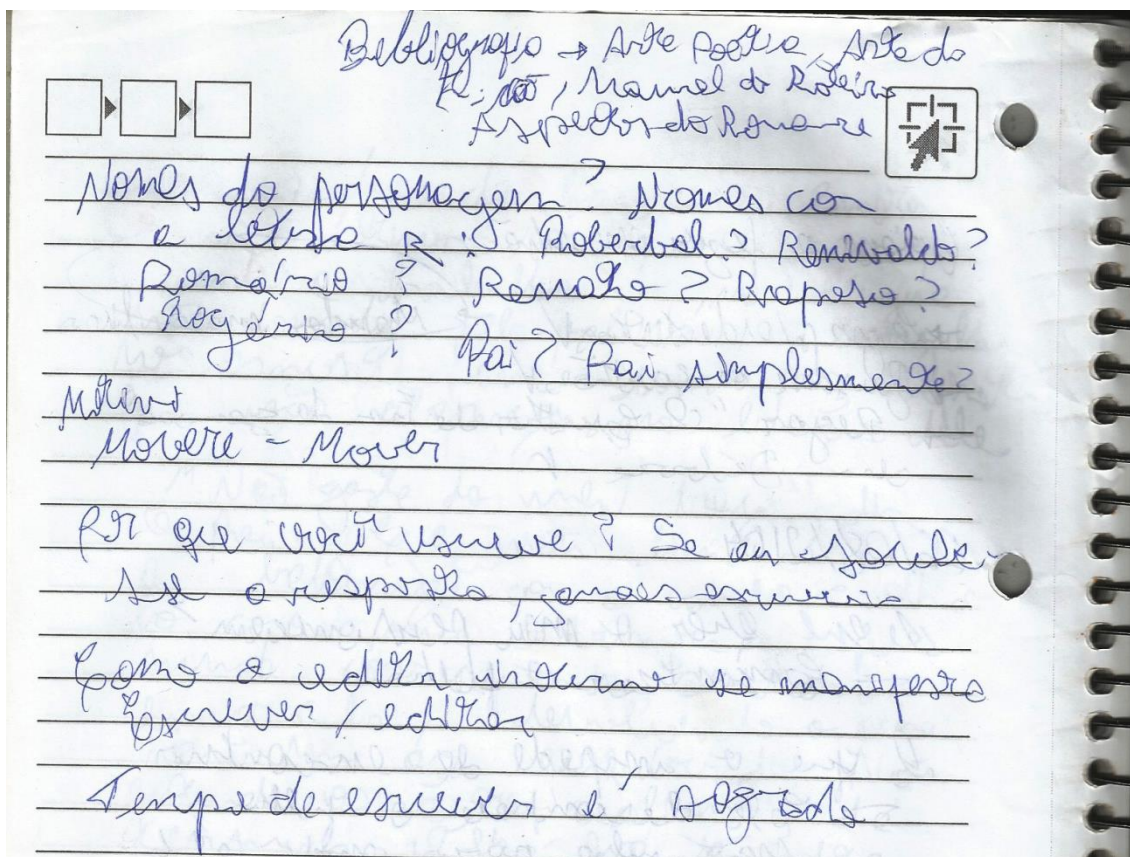 Bibliografia → Arte Poética, Arte da
Ficção, Manual do Roteiro
Aspectos do Romance
Nomes do personagem? Nomes com
a letra R: Roberbal? Renivaldo?
Romário? Renato? Raposo?
Rogério? Pai? Pai simplesmente?
Motivo
Movere - Mover
Por que você escreve? Se eu soubes-
se a resposta, jamais escreveria
Como o editor interno se manifesta
Escrever/editar
Tempo de escrever é sagrado